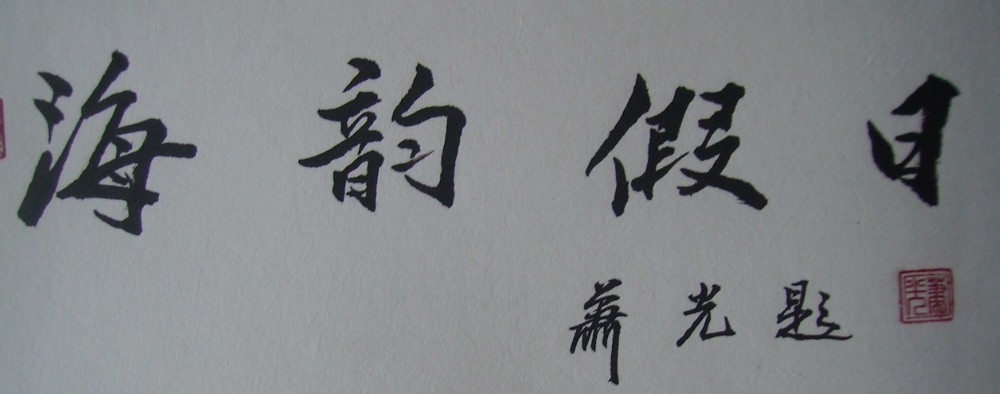 海韵假日
萧光题